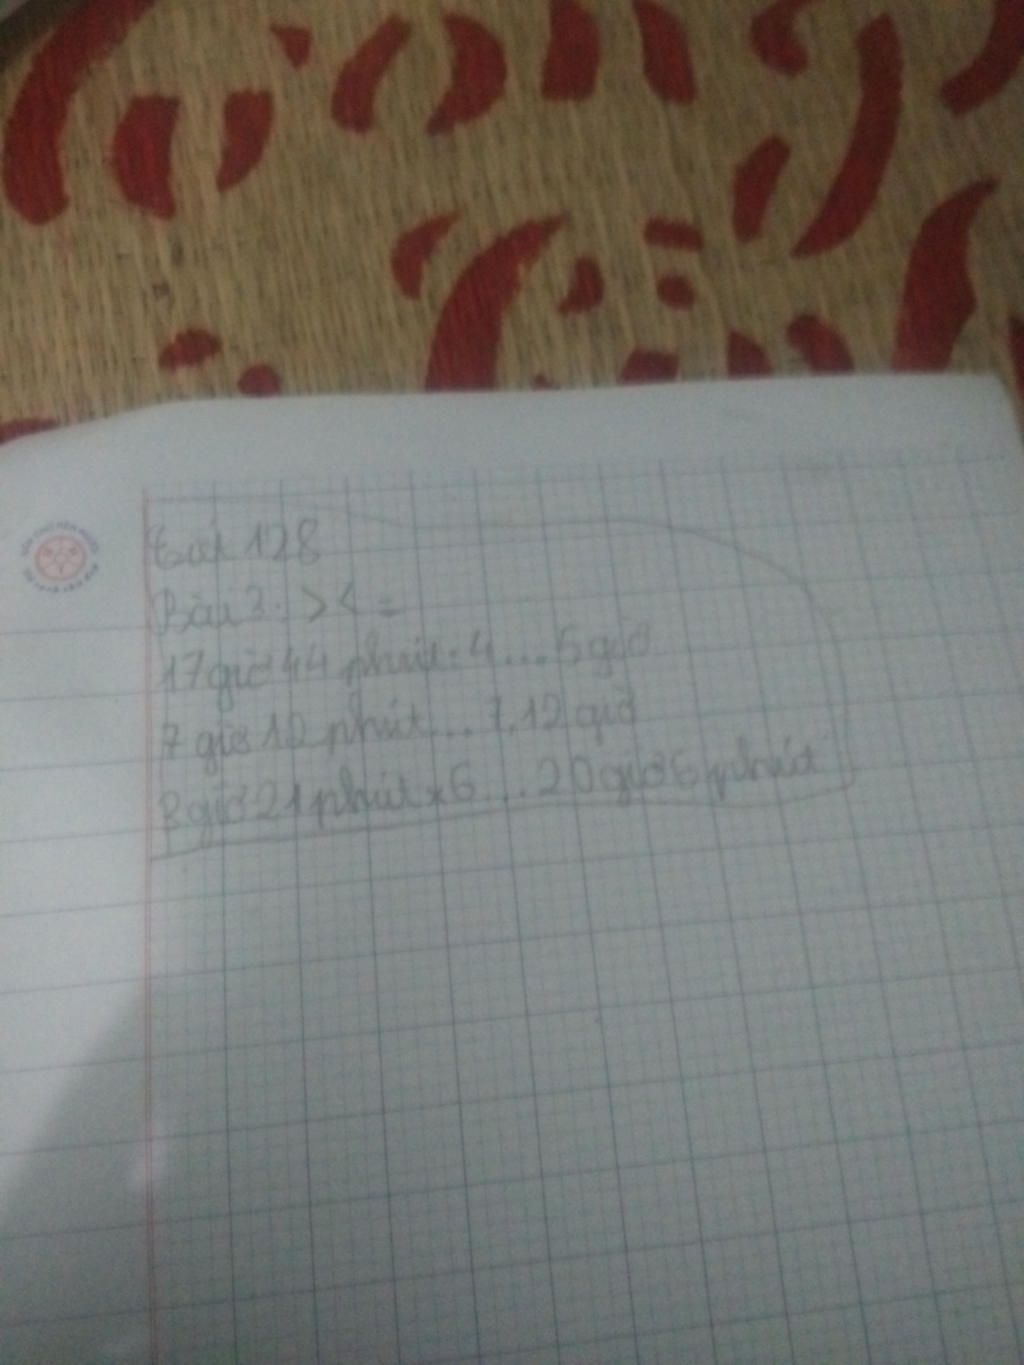 Tiết 128
Bài 3: > < =
17 giờ 44 phút : 4 ... 5 giờ
7 giờ 12 phút ... 7,12 giờ
3 giờ 21 phút x 6 ... 20 giờ 6 phút